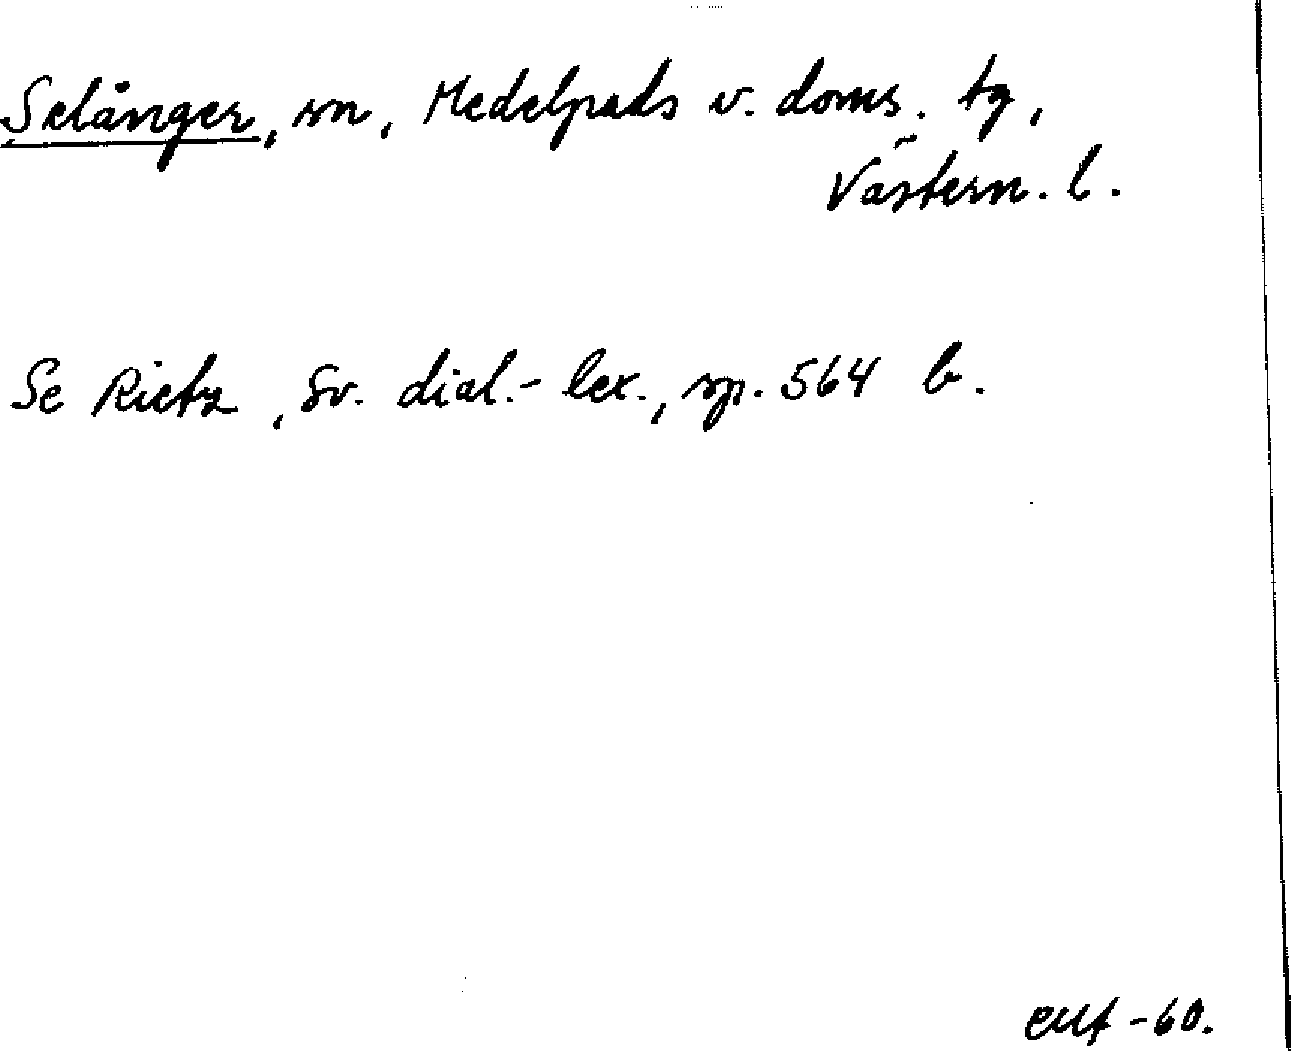 Selånger, sn, Medelpads v. doms. tg,
Västern. l.
Se Rietz, Sv. dial.-lex., sp. 564 b.
-60.